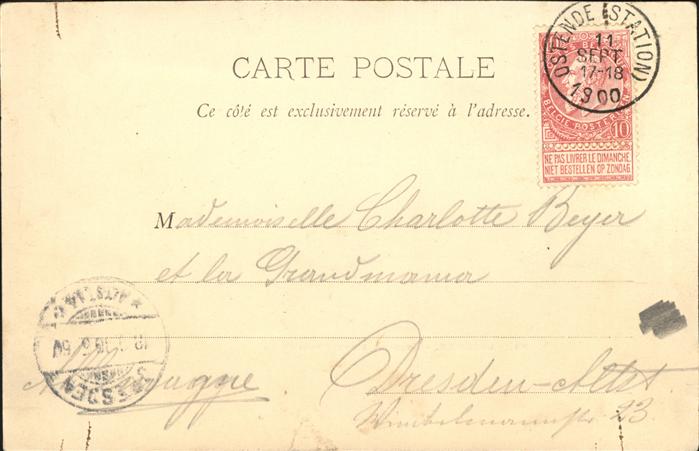 OSTENDE (STATION)
11
SEPT
17-18
1900
BELGIE POSTERIJEN
10
NE PAS LIVRER LE DIMANCHE
NIET BESTELLEN OP ZONDAG
CARTE POSTALE
Ce côté est exclusivement réservé à l'adresse.
Mademoiselle Charlotte Beyer
et la Grandmama
Allemagne
Dresden-Altst
23.
ALTST.
DRESDEN